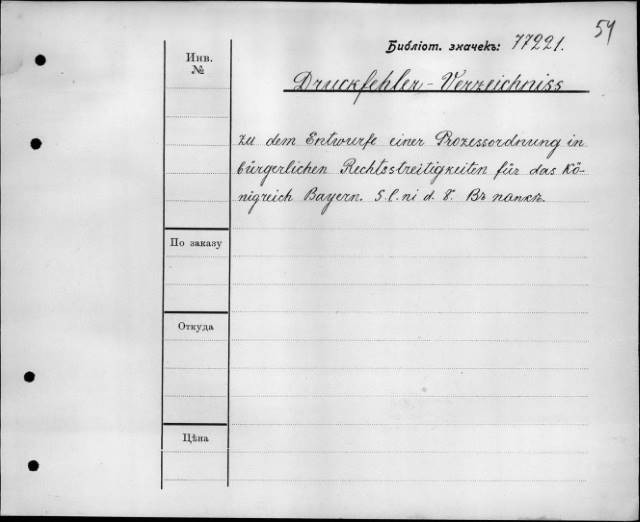 54
Библіот. значекъ: 77221.
Инв.
№
Druckfehler-Verzeichniss
zu dem Entwurfe einer Prozessordnung in
bürgerlichen Rechtsstreitigkeiten für das Kö-
nigreich Bayern. S. l. ni d. 8. Въ папкѣ.
По заказу
Откуда
Цѣна